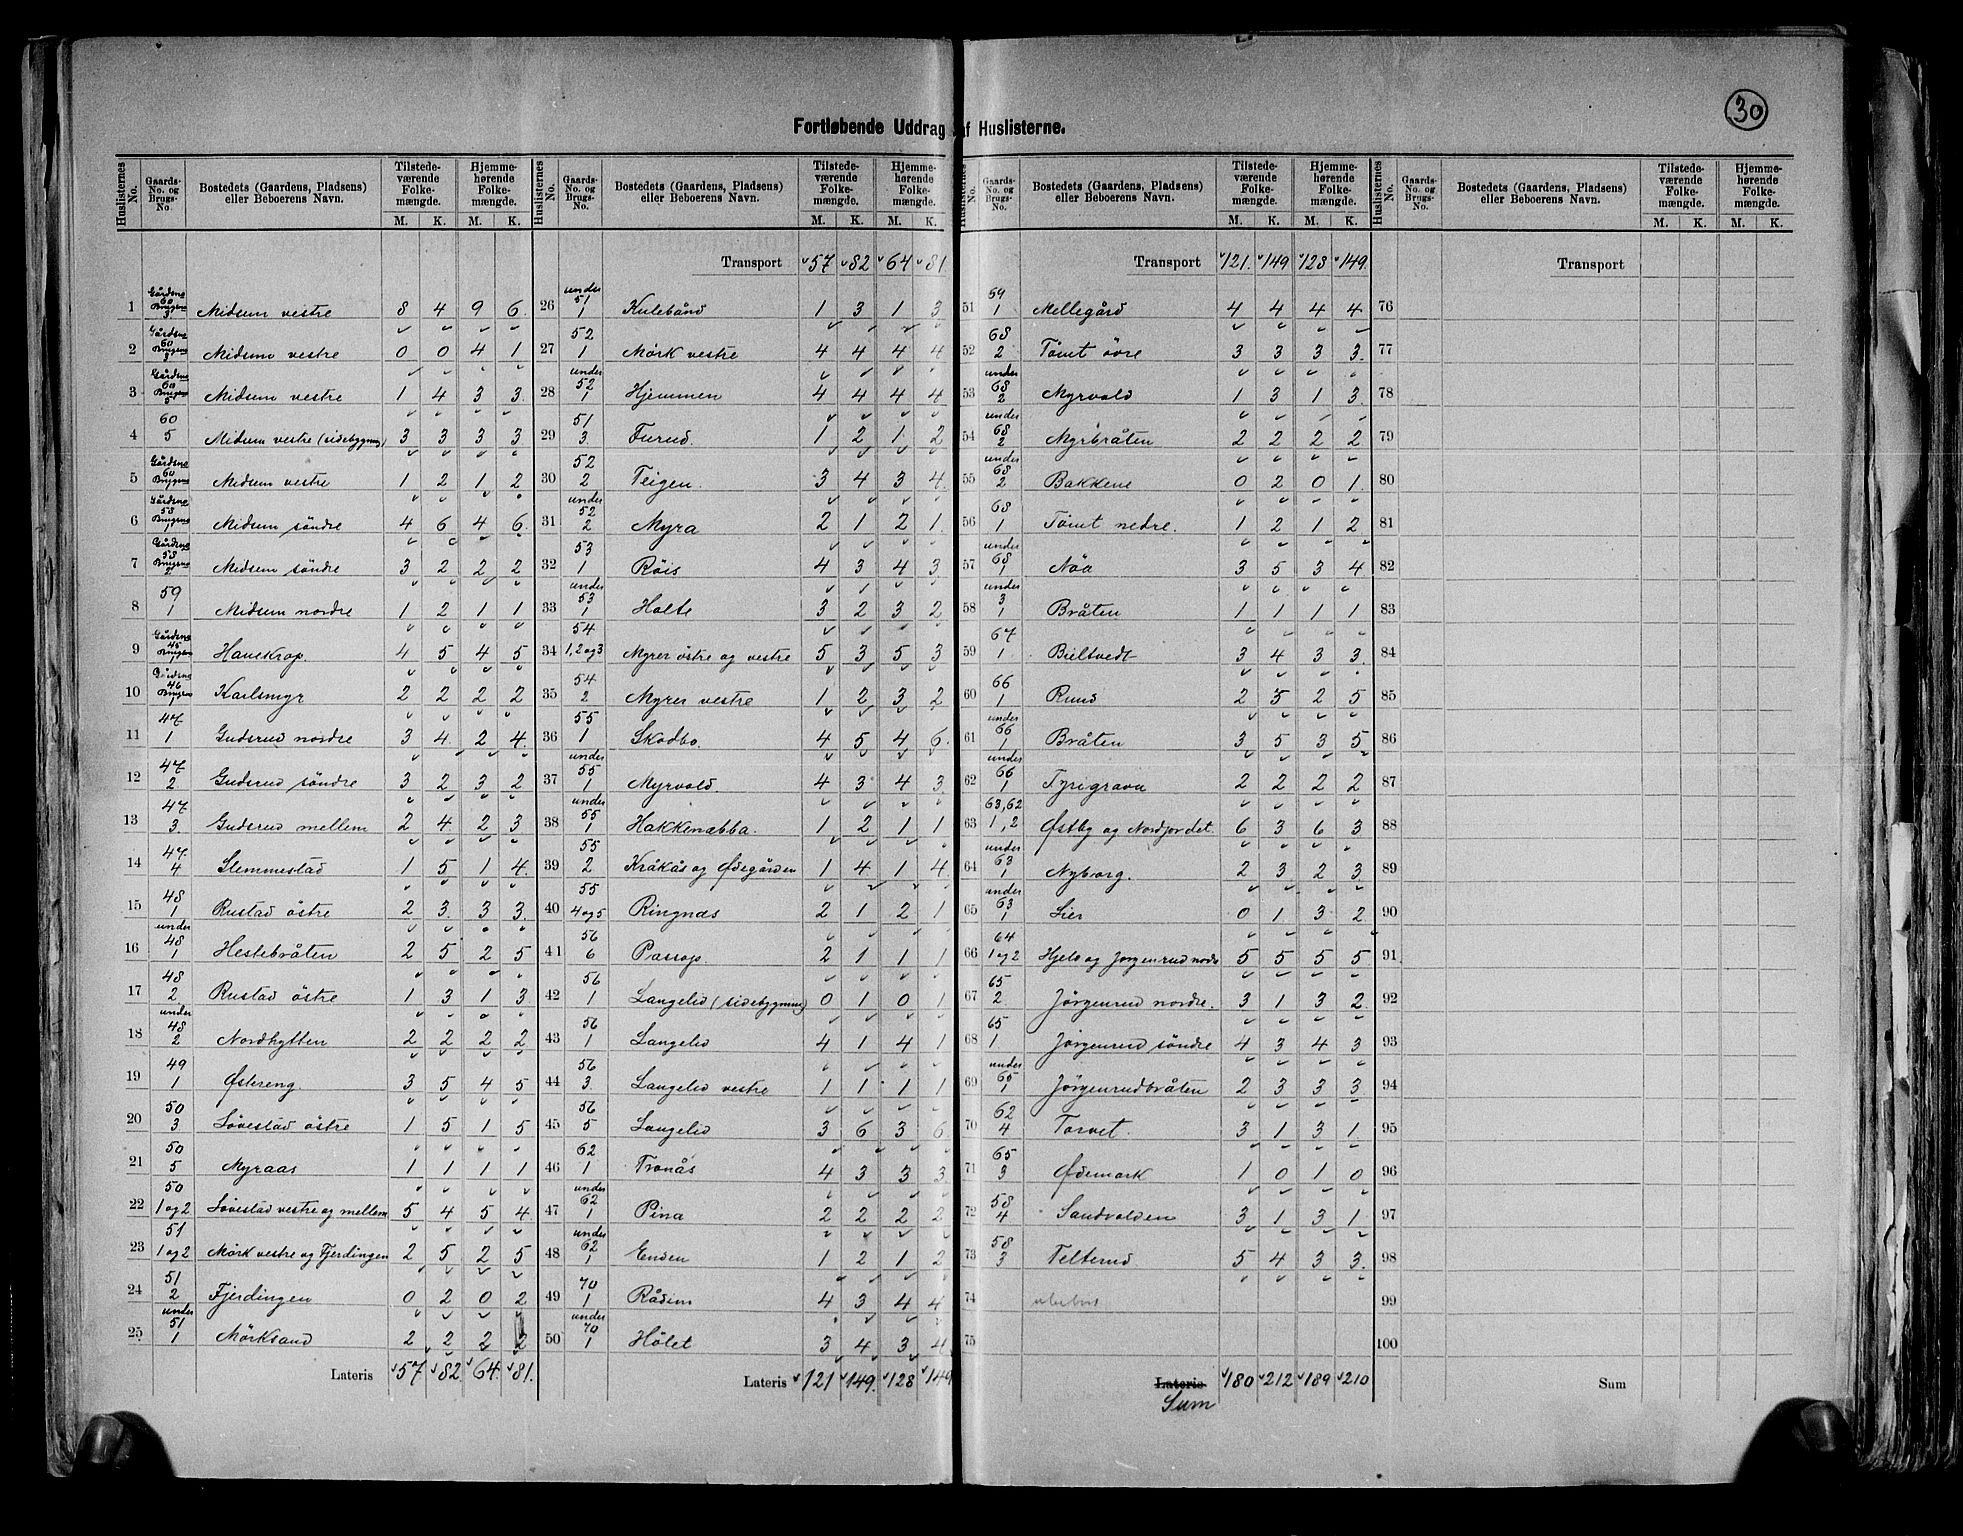 30
Fortløbende Uddrag af Huslisterne.
Huslisternes No. | Gaards-No. og Brugs-No. | Bostedets (Gaardens, Pladsens) eller Beboerens Navn. | Tilstedeværende Folkemængde. M. K. | Hjemmehørende Folkemængde. M. K.
1 Gårdsno 60 Brugsno 3 Midsem vestre 8 4 9 6
2 Gårdsno 60 Brugsno 3 Midsem vestre 0 0 4 1
3 Gårdsno 60 Brugsno 5 Midsem vestre 1 4 3 3
4 60 5 Midsem vestre (sidebygning) 3 3 3 3
5 Gårdsno 60 Brugsno 1 Midsem vestre 1 2 1 2
6 Gårdsno 58 Brugsno 1 Midsem söndre 4 6 4 6
7 Gårdsno 58 Brugsno 2 Midsem söndre 3 2 2 2
8 59 1 Midsem nordre 1 2 1 1
9 Gårdsno 45 Brugsno 1 Havekrop. 4 5 4 5
10 Gårdsno 46 Brugsno 1 Karlsmyr 2 2 2 2
11 47 1 Gudsrud nordre 3 4 2 4
12 47 2 Gudsrud söndre 3 2 3 2
13 47 3 Gudsrud mellem 2 4 2 3
14 47 4 Slemmestad 1 5 1 4
15 48 1 Rustad östre 2 3 3 3
16 under 48 1 Hestebråten 2 5 2 5
17 48 2 Rustad östre 1 3 1 3
18 under 48 2 Nordhytten 2 2 2 2
19 49 1 Østereng 3 5 4 5
20 50 3 Lövestad östre 1 5 1 5
21 50 5 Myraas 1 1 1 1
22 50 1 og 2 Lövestad vestre og mellem 5 4 5 4
23 51 1 og 2 Mörk vestre og Fjerdingen 2 5 2 5
24 51 2 Fjerdingen 0 2 0 2
25 under 51 1 Mörksand 2 2 2 2
Lateris 57 82 64 81
Transport 57 82 64 81
26 under 51 1 Kulebånd 1 3 1 3
27 52 1 Mörk vestre 4 4 4 4
28 under 52 1 Hjemmen 4 4 4 4
29 51 3 Furud. 1 2 1 2
30 52 2 Teigen. 3 4 3 4
31 under 52 2 Myra 2 1 2 1
32 53 1 Röis 4 3 4 3
33 under 53 1 Holte 3 2 3 2
34 54 1, 2 og 3 Myrer östre og vestre 5 3 5 3
35 54 2 Myrer vestre 1 2 3 2
36 55 1 Skodbo. 4 5 4 6
37 under 55 1 Myrvold. 4 3 4 3
38 under 55 1 Hakkenabba. 1 2 1 1
39 55 2 Kråkås og Ødegården 1 4 1 4
40 55 4 og 5 Ringnæs 2 1 2 1
41 56 6 Passop. 2 1 1 1
42 56 1 Langelid (sidebygning) 0 1 0 1
43 56 1 Langelid 4 1 4 1
44 56 3 Langelid vestre 1 1 1 1
45 56 5 Langelid 3 6 3 6
46 62 1 Tronås 4 3 3 3
47 under 62 1 Pina 2 2 2 2
48 under 62 1 Enden 1 2 1 2
49 70 1 Rådim 4 3 4 4
50 under 70 1 Hölet 3 4 3 4
Lateris 121 149 128 149
Huslisternes No. | Gaards-No. og Brugs-No. | Bostedets (Gaardens, Pladsens) eller Beboerens Navn. | Tilstedeværende Folkemængde. M. K. | Hjemmehørende Folkemængde. M. K.
Transport 121 149 128 149
51 59 1 Mellegård 4 4 4 4
52 68 2 Tömt övre 3 3 3 3
53 under 68 2 Myrvold 1 3 1 3
54 under 68 2 Myrbråten 2 2 2 2
55 under 68 2 Bakkene 0 2 0 1
56 68 1 Tömt nedre. 1 2 1 2
57 under 68 1 Nöa 3 5 3 4
58 under 3 1 Bråten 1 1 1 1
59 67 1 Bieltvedt 3 4 3 3
60 66 1 Ruud 2 5 2 5
61 under 66 1 Bråten 3 5 3 5
62 under 66 1 Tyrigrava 2 2 2 2
63 63, 62 1, 2 Østby og Nordjordet. 6 3 6 3
64 under 63 1 Nyborg. 2 3 2 3
65 under 63 1 Lier 0 1 3 2
66 64 1 og 2 Hjelv og Jörgenrud nordr 5 5 5 5
67 65 2 Jörgenrud nordre. 3 1 3 2
68 65 1 Jörgenrud söndre 4 3 4 3
69 under 65 1 Jörgenrudbråten 2 3 3 3
70 62 4 Torvet. 3 1 3 1
71 65 3 Ødemark 1 0 1 0
72 58 4 Sandvolden 3 1 3 1
73 58 3 Telterud 5 4 3 3
74
75
Lateris Sum 180 212 189 210
Transport
76
77
78
79
80
81
82
83
84
85
86
87
88
89
90
91
92
93
94
95
96
97
98
99
100
Sum